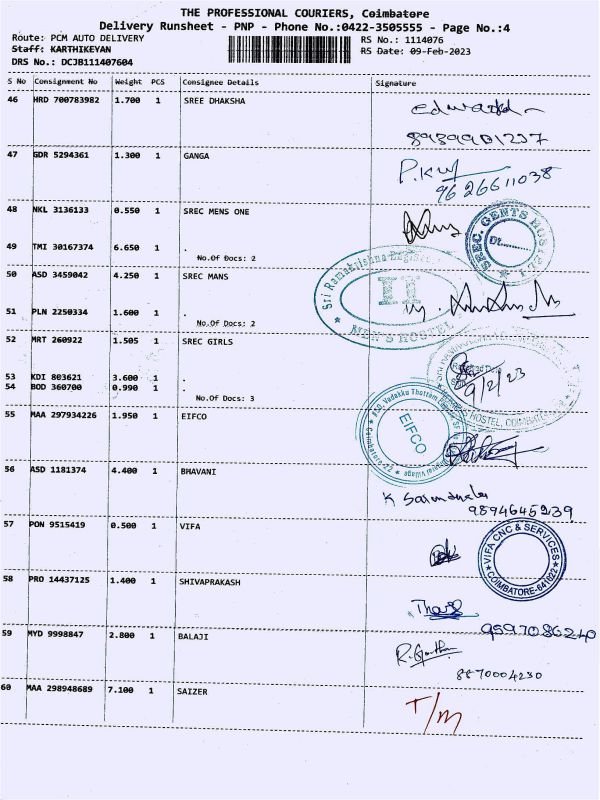 THE PROFESSIONAL COURIERS, Coimbatore
Delivery Runsheet - PNP - Phone No.:0422-3505555 - Page No.:4
Route: PCM AUTO DELIVERY
RS No.: 1114076
Staff: KARTHIKEYAN
RS Date: 09-Feb-2023
DRS No.: DCJB111407604
S No Consignment No Weight PCS Consignee Details Signature
46 HRD 700783982 1.700 1 SREE DHAKSHA
47 GDR 5294361 1.300 1 GANGA
9626611038
48 NKL 3136133 0.550 1 SREC MENS ONE
SREC. GENTS HOSTEL
Dt..........
49 TMI 30167374 6.650 1 .
No.Of Docs: 2
Sri Ramakrishna
II
MEN'S HOSTEL
50 ASD 3459042 4.250 1 SREC MANS
51 PLN 2250334 1.600 1 .
No.Of Docs: 2
52 MRT 260922 1.505 1 SREC GIRLS
9/2/23
HOSTEL, COIMBATORE
53 KDI 803621 3.600 1 .
54 BOD 360700 0.990 1 .
No.Of Docs: 3
55 MAA 297934226 1.950 1 EIFCO
EIFCO
Vadakku Thottam
Village
Coimbatore-22
56 ASD 1181374 4.400 1 BHAVANI
9894645239
57 PON 9515419 0.500 1 VIFA
VIFA CNC & SERVICES
COIMBATORE-641022
58 PRO 14437125 1.400 1 SHIVAPRAKASH
9597086240
59 MYD 9998847 2.800 1 BALAJI
8870004230
60 MAA 298948689 7.100 1 SAIZER
T/M